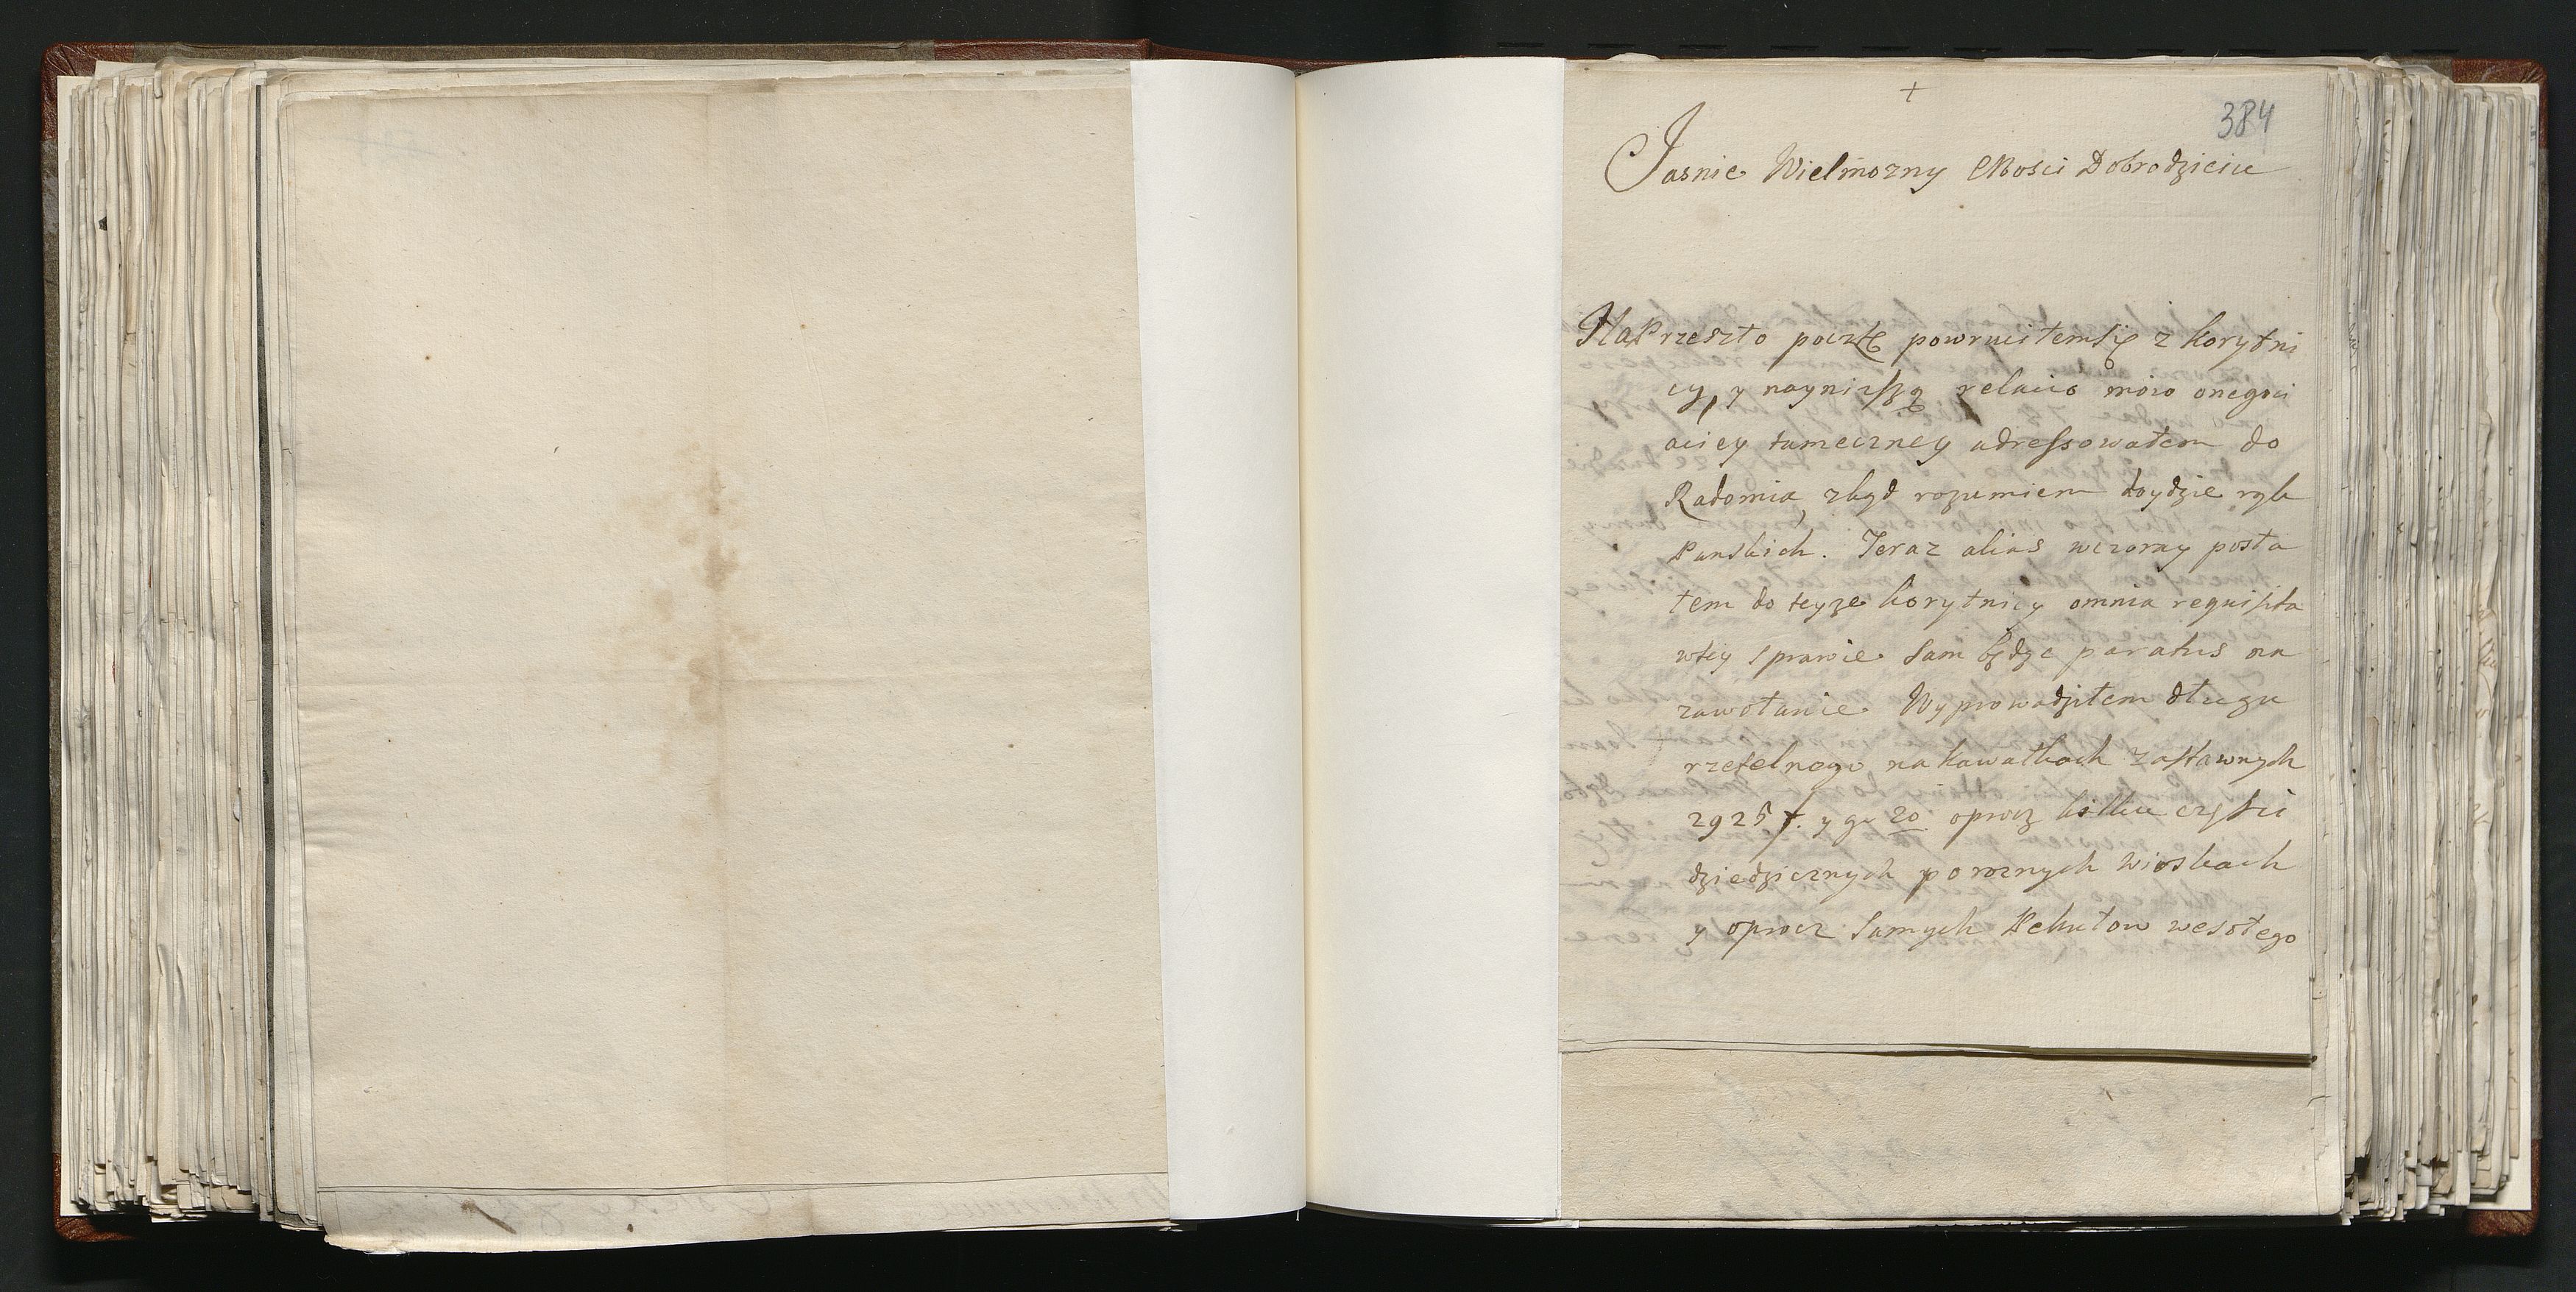 +
384
Jasnie Wielmozny Mosci Dobrodzieiu
Na Przeszło pocztę powruciłemsię z Korytni
cy, y nayniszszą relacio moio onegoci
aciey tameczney adressowałem do
Radomia, zkąd rozumiem doydzie rąk
Panskich. Teraz alias wczoray posła
łem do teyze Korytnicy omnia requisita
wtey sprawie Sam będąc paratus na
zawołanie. Wyprowadziłem długu
rzetelnego na kawałkach zastawnych
2925 f. y gr 20. oprocz kilku częsci
dziedzicznych po roznych wioskach
y oprocz Samych Pekutow wesołego